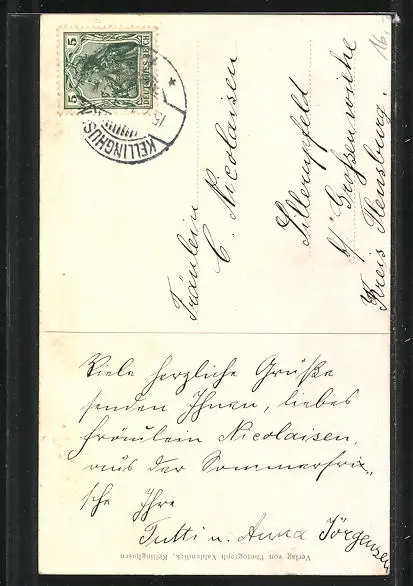 5 5
DEUTSCHES REICH
KELLINGHUSEN
15
16.
Fräulein
C. Nicolaisen
Sillerupfeld
b/ Großenwiehe
Kreis Flensburg.
Viele herzliche Grüße
senden Ihnen, liebes
Fräulein Nicolaisen,
aus der Sommerfri-
sche Ihre
Tutti u. Anna Jörgensen
Verlag von Photograph Vahlendick, Kellinghusen